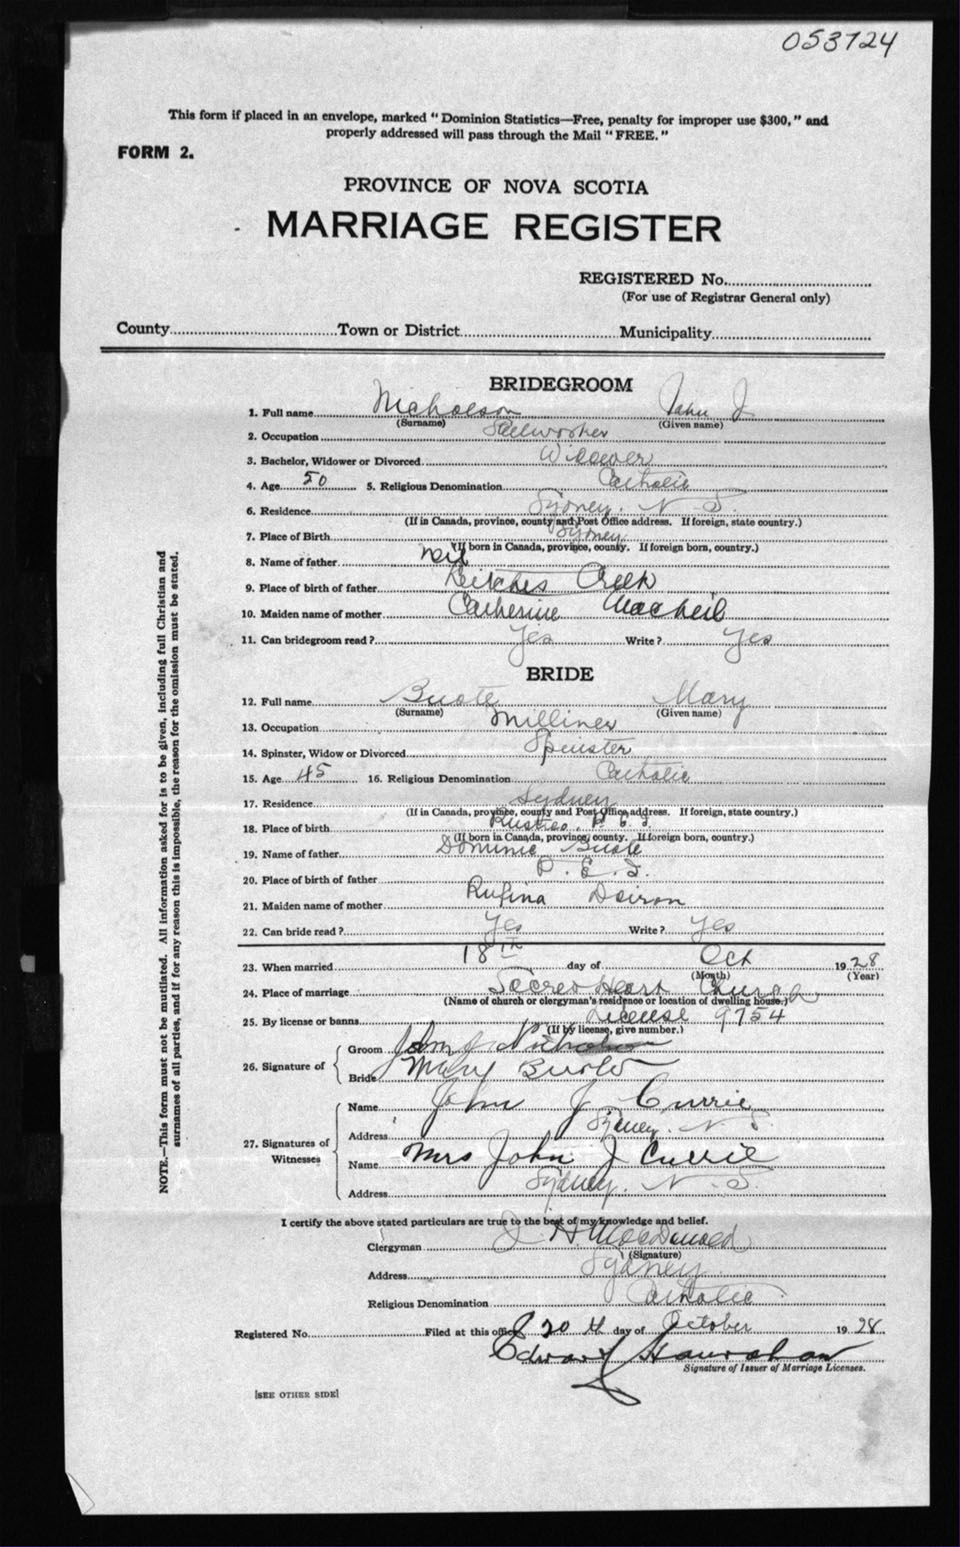 053724
This form if placed in an envelope, marked "Dominion Statistics—Free, penalty for improper use $300," and
properly addressed will pass through the Mail "FREE."
FORM 2.
PROVINCE OF NOVA SCOTIA
MARRIAGE REGISTER
REGISTERED No.
(For use of Registrar General only)
County Town or District Municipality
BRIDEGROOM
1. Full name Nicholson John J
(Surname) (Given name)
2. Occupation Steelworker
3. Bachelor, Widower or Divorced Widower
4. Age 50 5. Religious Denomination Catholic
6. Residence Sydney. N. S.
(If in Canada, province, county and Post Office address. If foreign, state country.)
7. Place of Birth Sydney
(If born in Canada, province, county. If foreign born, country.)
8. Name of father Neil
9. Place of birth of father Leitches Creek
10. Maiden name of mother Catherine MacNeil
11. Can bridegroom read? Yes Write? Yes
BRIDE
12. Full name Buote Mary
(Surname) (Given name)
13. Occupation Milliner
14. Spinster, Widow or Divorced Spinster
15. Age 45 16. Religious Denomination Catholic
17. Residence Sydney
(If in Canada, province, county and Post Office address. If foreign, state country.)
18. Place of birth Rustico. P E I
(If born in Canada, province, county. If foreign born, country.)
19. Name of father Dominic Buote
20. Place of birth of father P. E. I.
21. Maiden name of mother Rufina Doiron
22. Can bride read? Yes Write? Yes
23. When married 18th day of Oct 1928
(Month) (Year)
24. Place of marriage Sacred Heart Church
(Name of church or clergyman's residence or location of dwelling house.)
25. By license or banns License 9754
(If by license, give number.)
26. Signature of Groom John J Nicholson
Bride Mary Buote
27. Signatures of Witnesses Name John J Currie
Address Sydney. N. S.
Name Mrs John J Currie
Address Sydney. N. S.
I certify the above stated particulars are true to the best of my knowledge and belief.
Clergyman J H MacDonald
(Signature)
Address Sydney
Religious Denomination Catholic
Registered No. Filed at this office 20th day of October 1928
Edward Hanrahan
Signature of Issuer of Marriage Licenses.
[SEE OTHER SIDE]
NOTE.—This form must not be mutilated. All information asked for is to be given, including full Christian and
surnames of all parties, and if for any reason this is impossible, the reason for the omission must be stated.